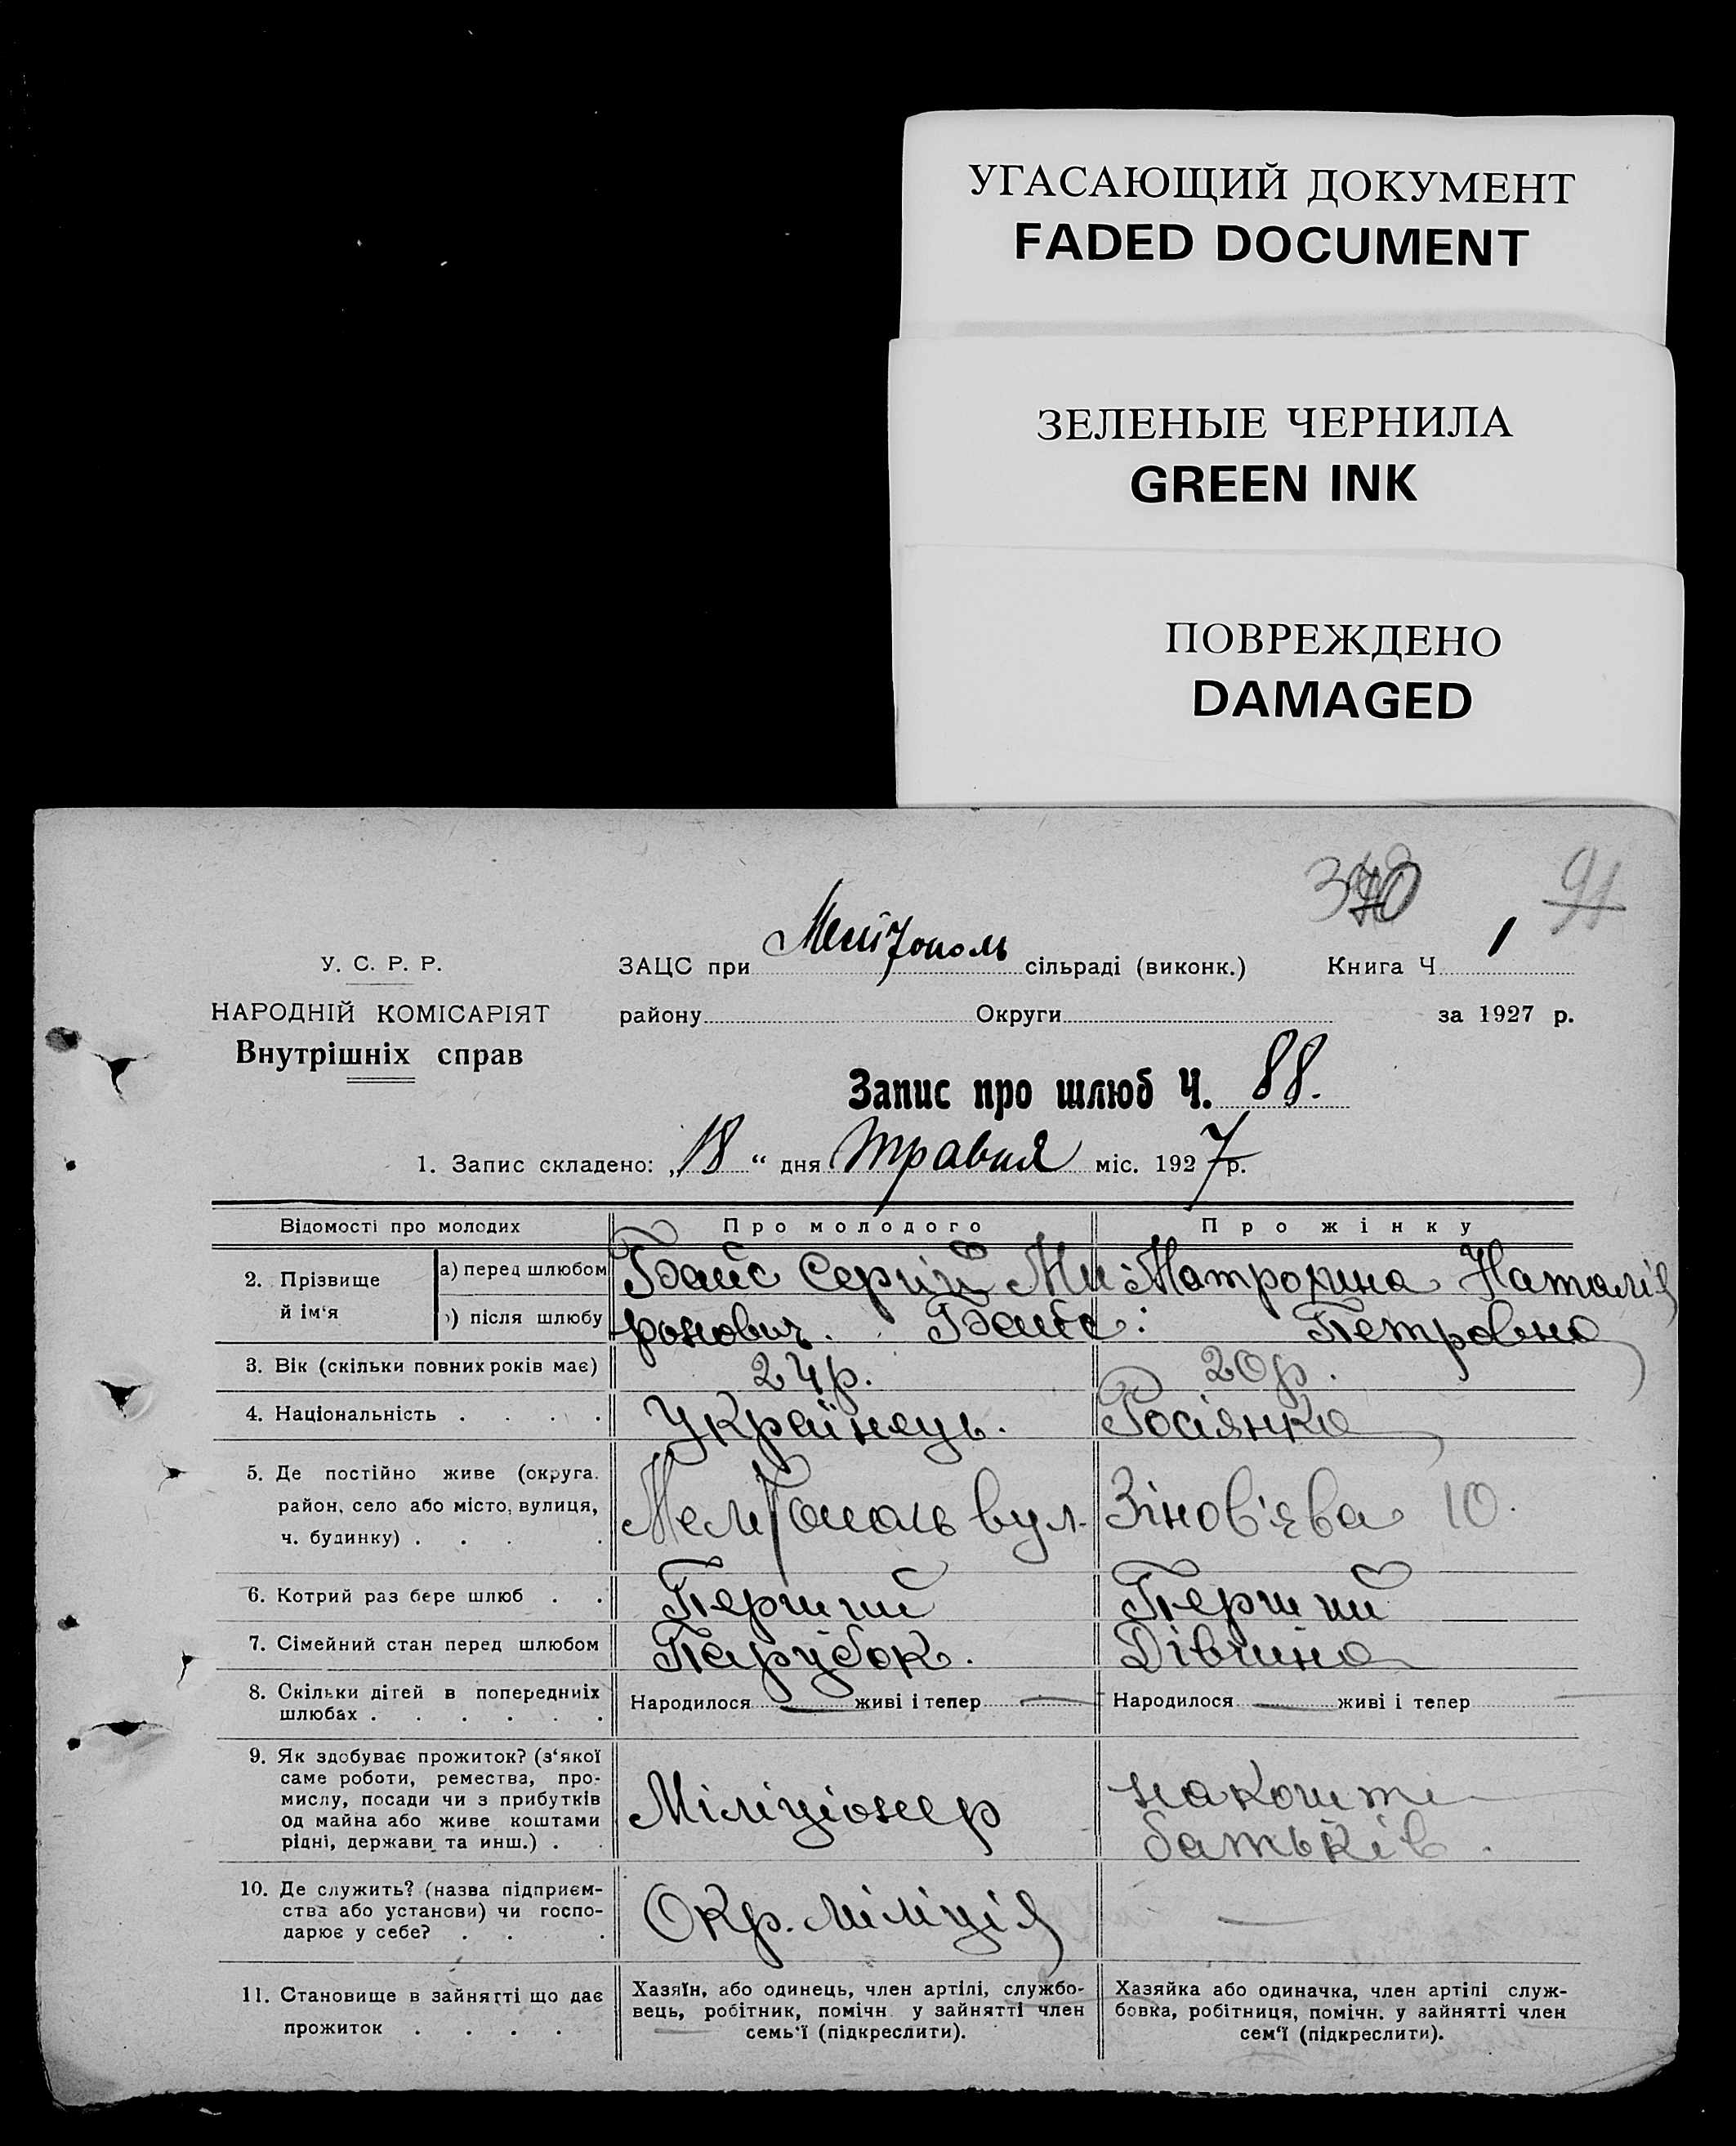 УГАСАЮЩИЙ ДОКУМЕНТ
FADED DOCUMENT
ЗЕЛЕНЫЕ ЧЕРНИЛА
GREEN INK
ПОВРЕЖДЕНО
DAMAGED
91
У. С. Р. Р.
НАРОДНІЙ КОМІСАРІЯТ
Внутрішніх справ
ЗАЦС при Мелітополь сільраді (виконк.) Книга Ч. 1
району Округи за 1927 р.
Запис про шлюб Ч. 88.
1. Запис складено: „18“ дня травня міс. 1927 р.
Відомості про молодих Про молодого Про жінку
2. Прізвище й ім‘я
а) перед шлюбом
) після шлюбу
Сергій Ми- Матрохина Наталія
ронович. Петровна
3. Вік (скільки повних років має) 24р. 20р.
4. Національність . . . . Українець. Росіянка
5. Де постійно живе (округа. район, село або місто, вулиця, ч. будинку) . . . .
Мелітополь вул. Зінов'єва 10.
6. Котрий раз бере шлюб . . Перший Перший
7. Сімейний стан перед шлюбом Парубок. Дівчина
8. Скільки дітей в попередниіх шлюбах . . . . . .
Народилося — живі і тепер — Народилося — живі і тепер —
9. Як здобуває прожиток? (з‘якої
саме роботи, ремества, про-
мислу, посади чи з прибутків
од майна або живе коштами
рідні, держави та инш.) . .
Міліціонер
на кошти
батьків.
10. Де служить? (назва підприєм-
ства або установи) чи госпо-
дарює у себе? . . .
Окр. міліція —
11. Становище в зайнятті що дає
прожиток . . . .
Хазяїн, або одинець, член артілі, службо-
вець, робітник, помічн. у зайнятті член
семь‘ї (підкреслити).
Хазяйка або одиначка, член артілі служ-
бовка, робітниця, помічн. у зайнятті член
сем‘ї (підкреслити).